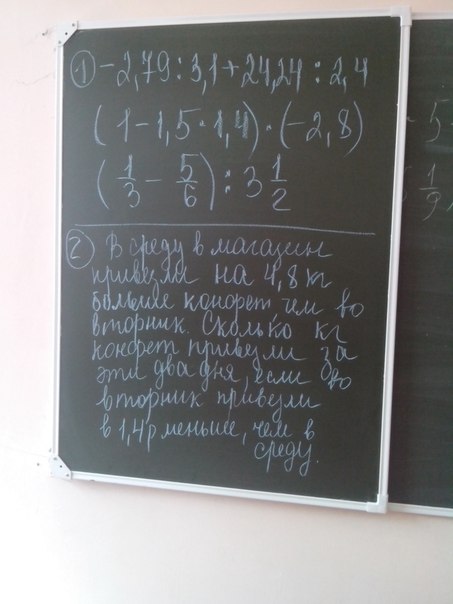 ① -2,79:3,1+24,24:2,4
(1-1,5·1,4)·(-2,8)
(1/3 - 5/6):3 1/2
② В среду в магазин
привезли на 4,8 кг
больше конфет чем во
вторник. Сколько кг
конфет привезли за
эти два дня, если во
вторник привезли
в 1,4р меньше, чем в
среду.
5
1/9